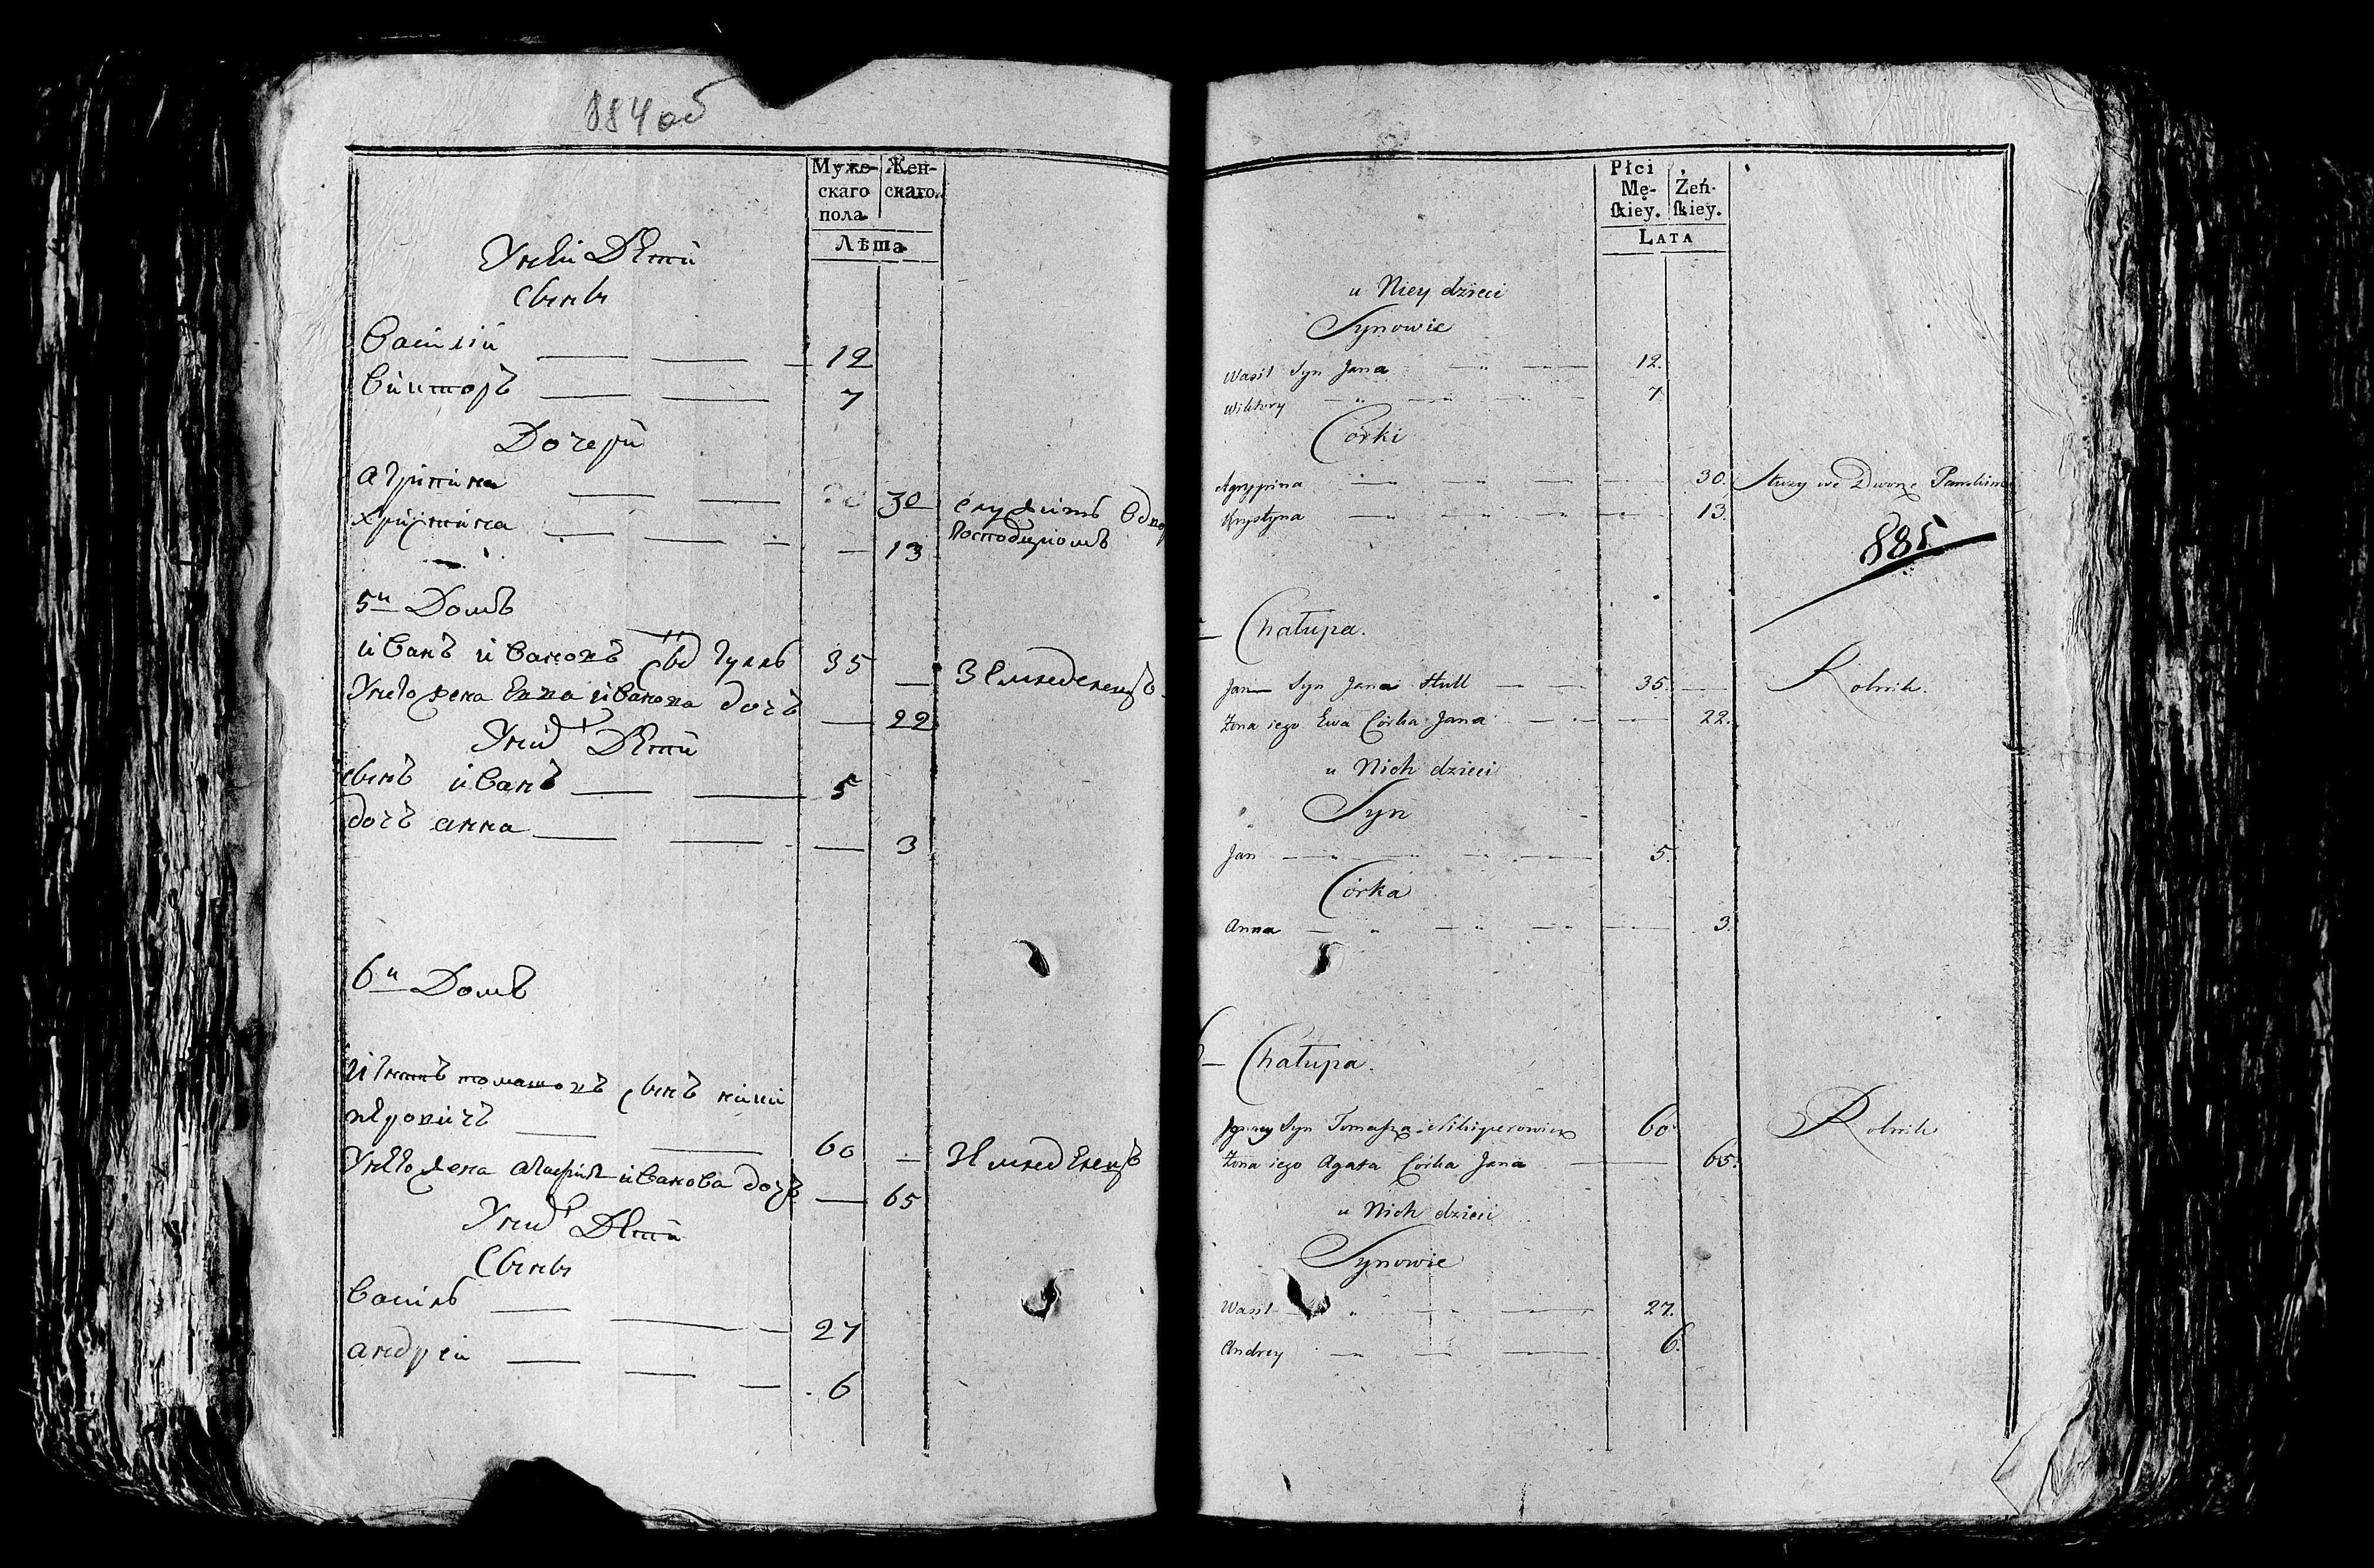 884 об
Муже- Жен-
скаго скаго.
пола.
Лѣта
У ней Дети
Сыны
Василій 12
Викторъ 7
Дочери
Агрипина 30 служитъ
Христина 13
5й Домъ
Иванъ Ивановъ Сынъ Гуллъ 35 Земледелецъ
У него жена Ева Иванова дочъ 22
У них Дети
Сынъ Иванъ 5
дочъ Анна 3
6й Домъ
Томашовъ Сынъ Ники
перовичъ 60 Земледелецъ
У него жена Иванова дочъ 65
У них Дети
Сыны
Василь 27
Андрей 6
Płci
Mę- Żeń-
skiey. skiey.
LATA
u Niey dzieci
Synowie
Wasil Syn Jana 12.
Wiktory 7
Córki
Agryppina 30. Służy we Dworze Pańskim
Krystyna 13.
885
Chałupa.
Jan Syn Jana Hull 35. Rolnik.
Żona iego Ewa Córka Jana 22.
u Nich dzieci
Syn
Jan 5.
Córka
Anna 3
Chałupa.
Ignacy Syn Tomasza Nikiperowicz 60 Rolnik
Żona iego Agata Córka Jana 65.
u Nich dzieci
Synowie
Wasil 27.
Andrey 6.